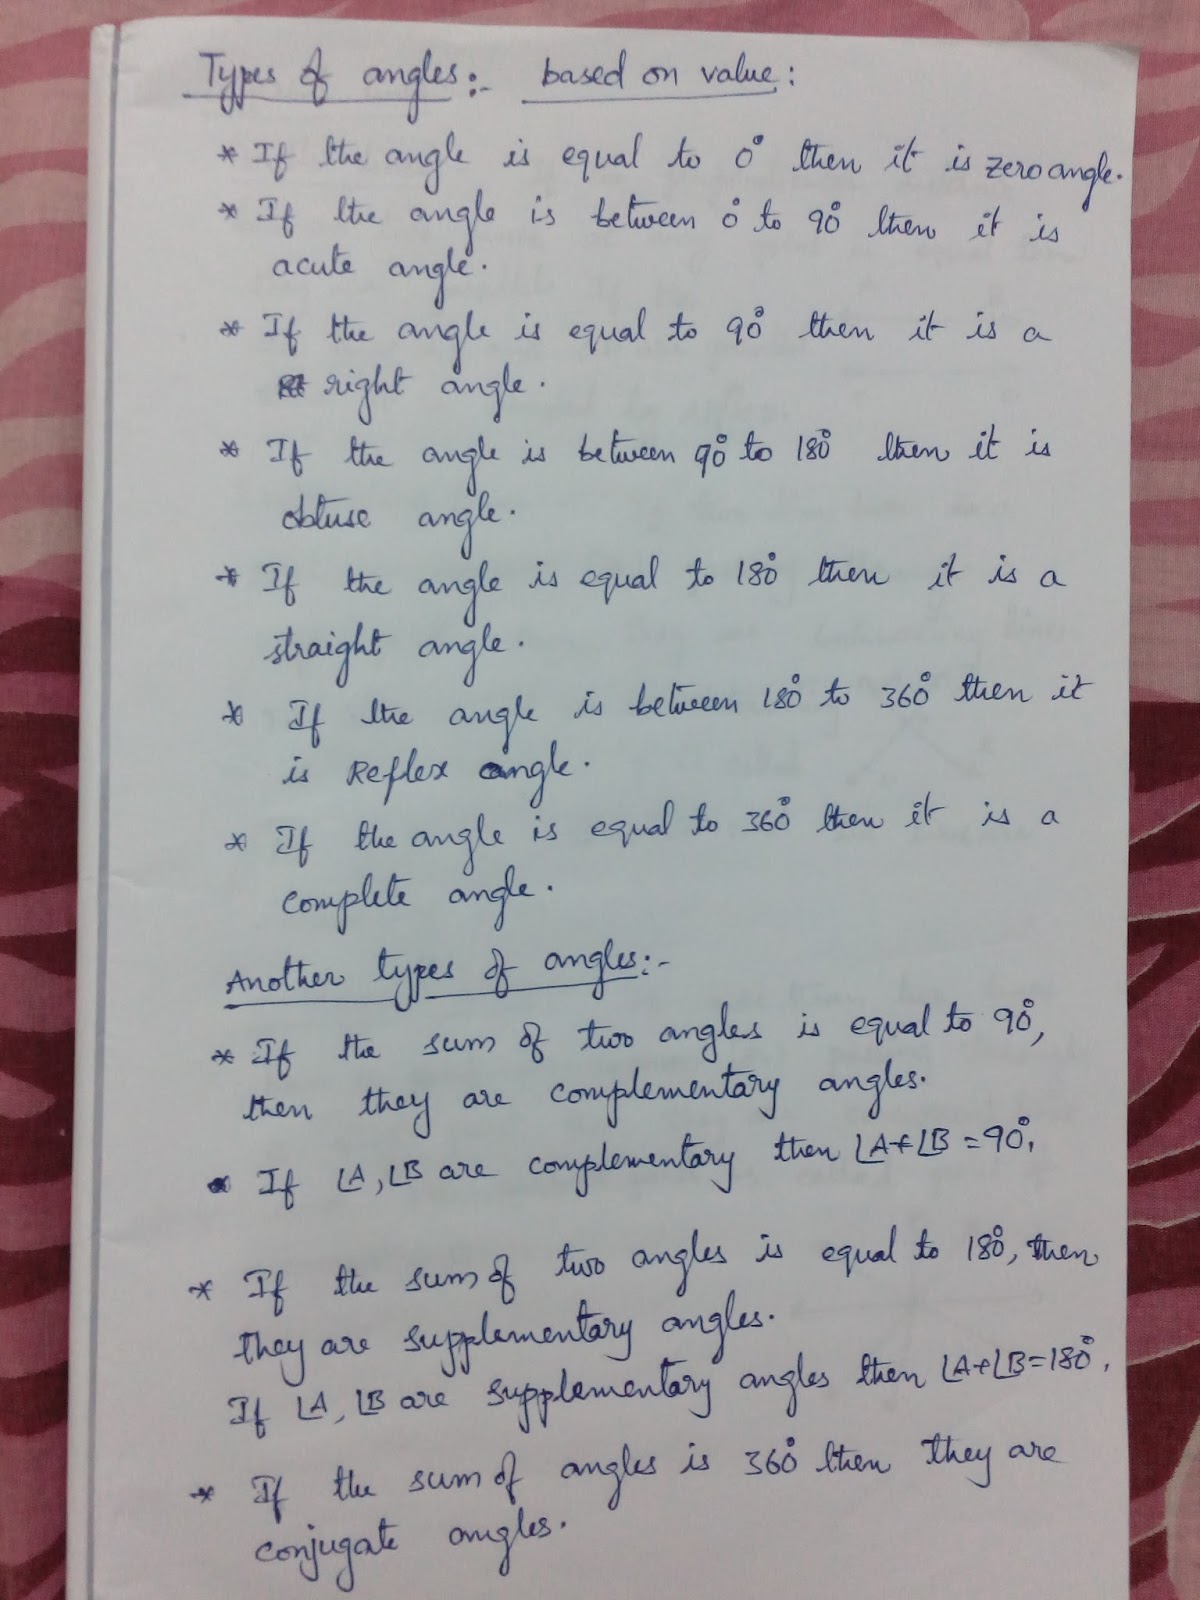 Types of angles:- based on value:
* If the angle is equal to 0° then it is zero angle.
* If the angle is between 0° to 90° then it is
acute angle.
* If the angle is equal to 90° then it is a
right angle.
* If the angle is between 90° to 180° then it is
obtuse angle.
* If the angle is equal to 180° then it is a
straight angle.
* If the angle is between 180° to 360° then it
is Reflex angle.
* If the angle is equal to 360° then it is a
complete angle.
Another types of angles:-
* If the sum of two angles is equal to 90°,
then they are complementary angles.
* If ∠A, ∠B are complementary then ∠A+∠B = 90°.
* If the sum of two angles is equal to 180°, then
they are supplementary angles.
If ∠A, ∠B are supplementary angles then ∠A+∠B=180°.
* If the sum of angles is 360° then they are
conjugate angles.